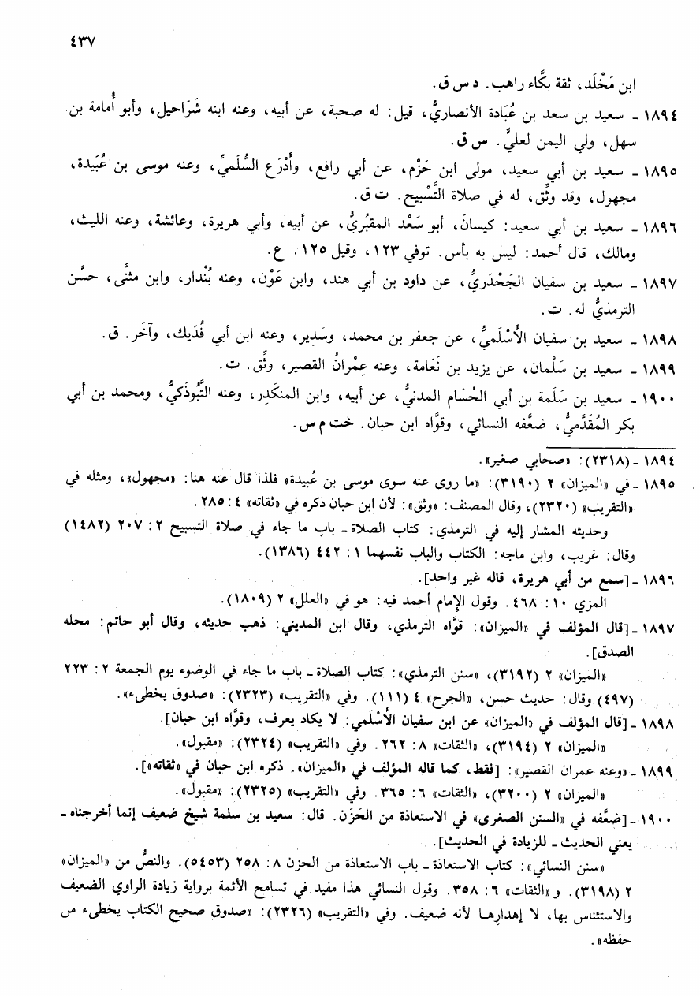 ٤٣٧
ابن مَخْلَد، ثقة بكّاء راهب. د س ق.
١٨٩٤ - سعيد بن سعد بن عُبَادة الأنصاريُّ، قيل: له صحبة، عن أبيه، وعنه ابنه شَرَاحيل، وأبو أُمامة بن
سهل، ولي اليمن لعليٍّ. س ق.
١٨٩٥ - سعيد بن أبي سعيد، مولى ابن حَزْم، عن أبي رافع، وأَدْرَع السُّلَميِّ، وعنه موسى بن عُبَيدة،
مجهول، وقد وثِّق، له في صلاة التَّسْبيح. ت ق.
١٨٩٦ - سعيد بن أبي سعيد: كيسان، أبو سَعْد المقبُريُّ، عن أبيه، وأبي هريرة، وعائشة، وعنه الليث،
ومالك، قال أحمد: ليس به بأس. توفي ١٢٣، وقيل ١٢٥. ع.
١٨٩٧ - سعيد بن سفيان الجَحْدَريُّ، عن داود بن أبي هند، وابن عَوْن، وعنه بُنْدار، وابن مثنَّى، حسَّن
الترمذيُّ له. ت.
١٨٩٨ - سعيد بن سفيان الأَسْلَميُّ، عن جعفر بن محمد، وسَدِير، وعنه ابن أبي فُدَيك، وآخر. ق.
١٨٩٩ - سعيد بن سَلْمان، عن يزيد بن نَعَامة، وعنه عِمْرانُ القصير، وثِّق. ت.
١٩٠٠ - سعيد بن سَلَمة بن أبي الحُسَام المدنيُّ، عن أبيه، وابن المنكَدِر، وعنه التَّبُوذَكيُّ، ومحمد بن أبي
بكر المُقَدَّميُّ، ضعَّفه النسائي، وقوَّاه ابن حبان. خت م س.
١٨٩٤ - (٢٣١٨): «صحابي صغير».
١٨٩٥ - في «الميزان» ٢ (٣١٩٠): «ما روى عنه سوى موسى بن عُبيدة» فلذا قال عنه هنا: «مجهول»، ومثله في
«التقريب» (٢٣٢٠)، وقال المصنف: «وثق»: لأن ابن حبان ذكره في «ثقاته» ٤: ٢٨٥.
وحديثه المشار إليه في الترمذي: كتاب الصلاة - باب ما جاء في صلاة التسبيح ٢: ٢٠٧ (١٤٨٢)
وقال: غريب، وابن ماجه: الكتاب والباب نفسهما ١: ٤٤٢ (١٣٨٦).
١٨٩٦ - [سمع من أبي هريرة، قاله غير واحد].
المزي ١٠: ٤٦٨. وقول الإمام أحمد فيه: هو في «العلل» ٢ (١٨٠٩).
١٨٩٧ - [قال المؤلف في «الميزان»: قوَّاه الترمذي، وقال ابن المديني: ذهب حديثه، وقال أبو حاتم: محله
الصدق].
«الميزان» ٢ (٣١٩٢)، «سنن الترمذي»: كتاب الصلاة - باب ما جاء في الوضوء يوم الجمعة ٢: ٢٢٣
(٤٩٧) وقال: حديث حسن، «الجرح» ٤ (١١١). وفي «التقريب» (٢٣٢٣): «صدوق يخطىء».
١٨٩٨ - [قال المؤلف في «الميزان» عن ابن سفيان الأَسْلمي: لا يكاد يعرف، وقوَّاه ابن حبان].
«الميزان» ٢ (٣١٩٤)، «الثقات» ٨: ٢٦٢. وفي «التقريب» (٢٣٢٤): «مقبول».
١٨٩٩ - «وعنه عمران القصير»: [فقط، كما قاله المؤلف في «الميزان». ذكره ابن حبان في «ثقاته»].
«الميزان» ٢ (٣٢٠٠)، «الثقات» ٦: ٣٦٥. وفي «التقريب» (٢٣٢٥): «مقبول».
١٩٠٠ - [ضعَّفه في «السنن الصغرى» في الاستعاذة من الحَزَن. قال: سعيد بن سلمة شيخ ضعيف إنما أخرجناه -
يعني الحديث - للزيادة في الحديث].
«سنن النسائي»: كتاب الاستعاذة - باب الاستعاذة من الحزن ٨: ٢٥٨ (٥٤٥٣). والنصُّ من «الميزان»
٢ (٣١٩٨). و«الثقات» ٦: ٣٥٨. وقول النسائي هذا مفيد في تسامح الأئمة برواية زيادة الراوي الضعيف
والاستئناس بها، لا إهدارها لأنه ضعيف. وفي «التقريب» (٢٣٢٦): «صدوق صحيح الكتاب يخطىء من
حفظه».